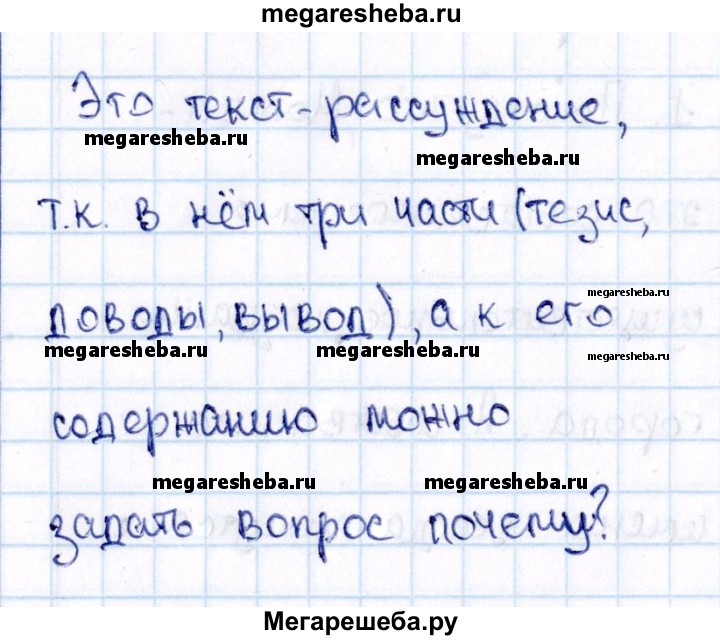 megaresheba.ru
Это текст-рассуждение,
megaresheba.ru
megaresheba.ru
т.к. в нём три части (тезис,
megaresheba.ru
доводы, вывод), а к его
megaresheba.ru megaresheba.ru megaresheba.ru
содержанию можно
megaresheba.ru megaresheba.ru
задать вопрос почему?
Мегарешеба.ру